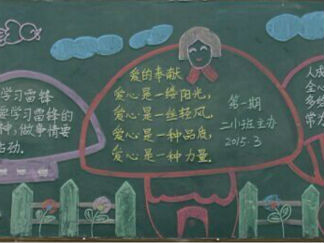 学习雷锋
学习雷锋的
做事情要
爱的奉献
爱心是一缕阳光,
爱心是一丝轻风,
爱心是一种品质,
爱心是一种力量.
第一期
二小班主办
2015.3
人
全心
多
常